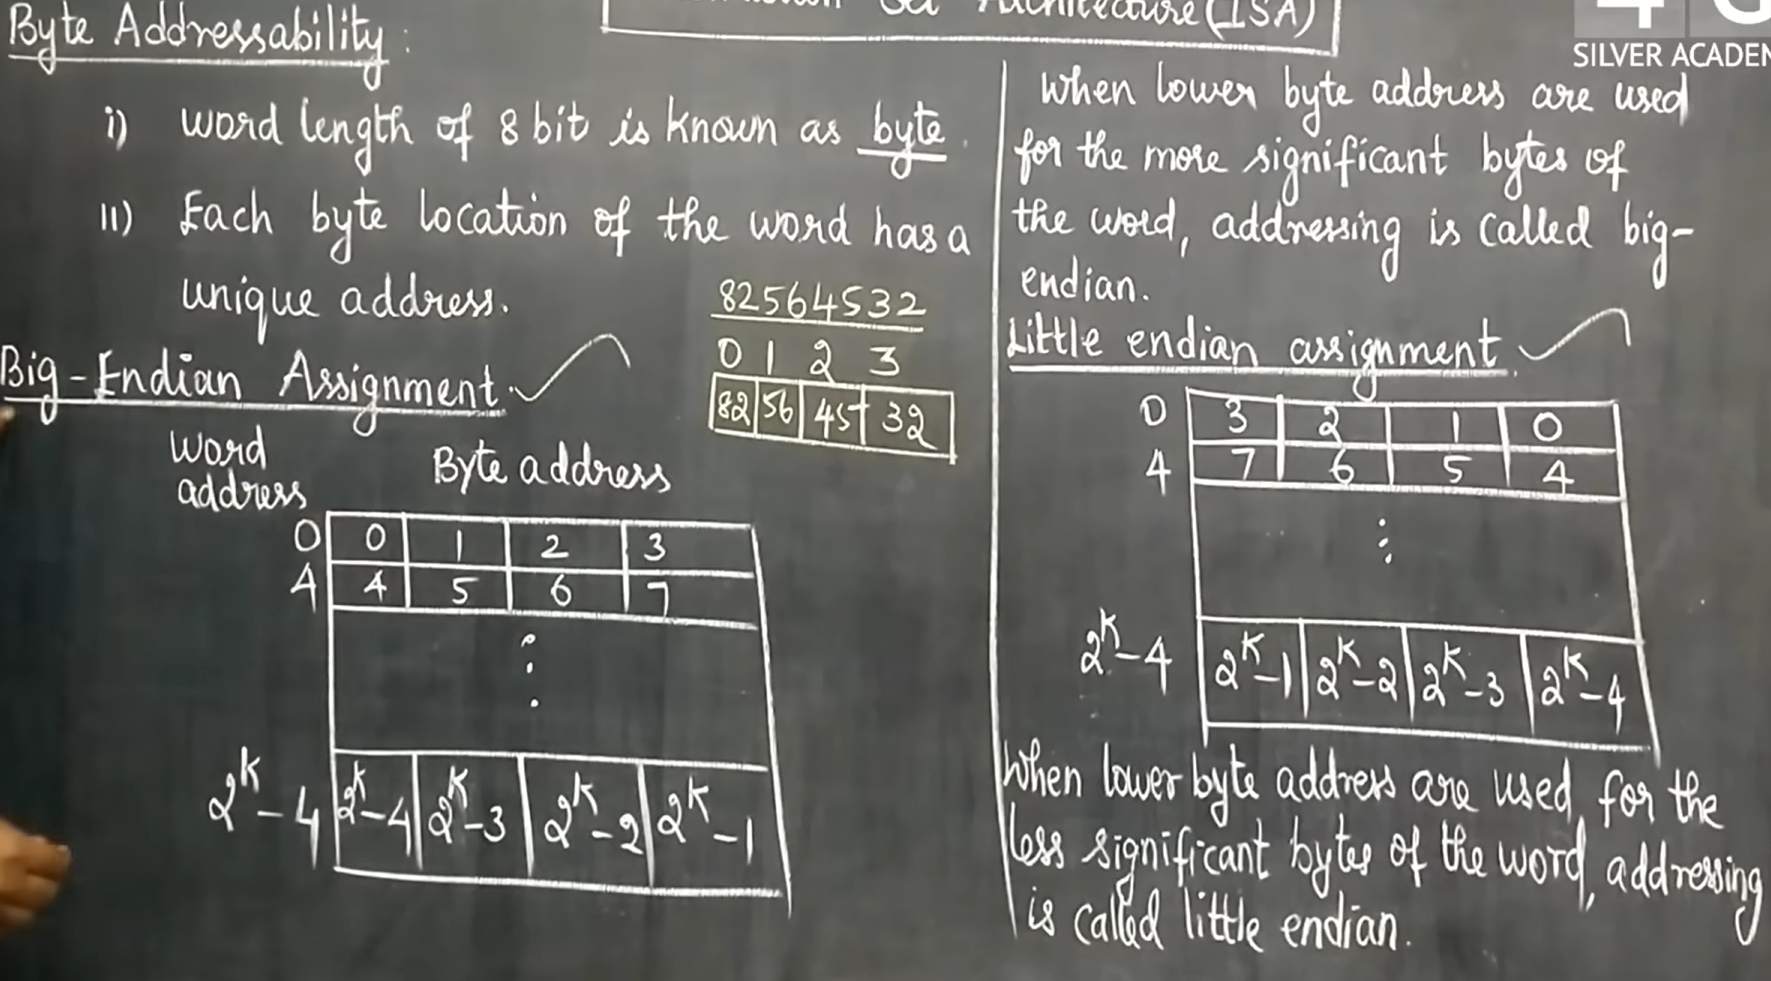 Set Architecture (ISA)
SILVER ACADEM
Byte Addressability :
i) word length of 8 bit is known as byte.
ii) Each byte location of the word has a
unique address.
82564532
0 1 2 3
82 56 45 32
Big-Endian Assignment.
word
address
Byte address
0 0 1 2 3
4 4 5 6 7
2^K-4 2^K-4 2^K-3 2^K-2 2^K-1
When lower byte address are used
for the more significant bytes of
the word, addressing is called big-
endian.
Little endian assignment.
0 3 2 1 0
4 7 6 5 4
2^K-4 2^K-1 2^K-2 2^K-3 2^K-4
When lower byte address are used for the
less significant bytes of the word, addressing
is called little endian.